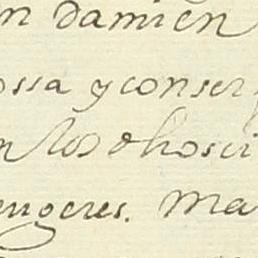 n damien
ossa y conser
n los ohosci
engeres. Ma